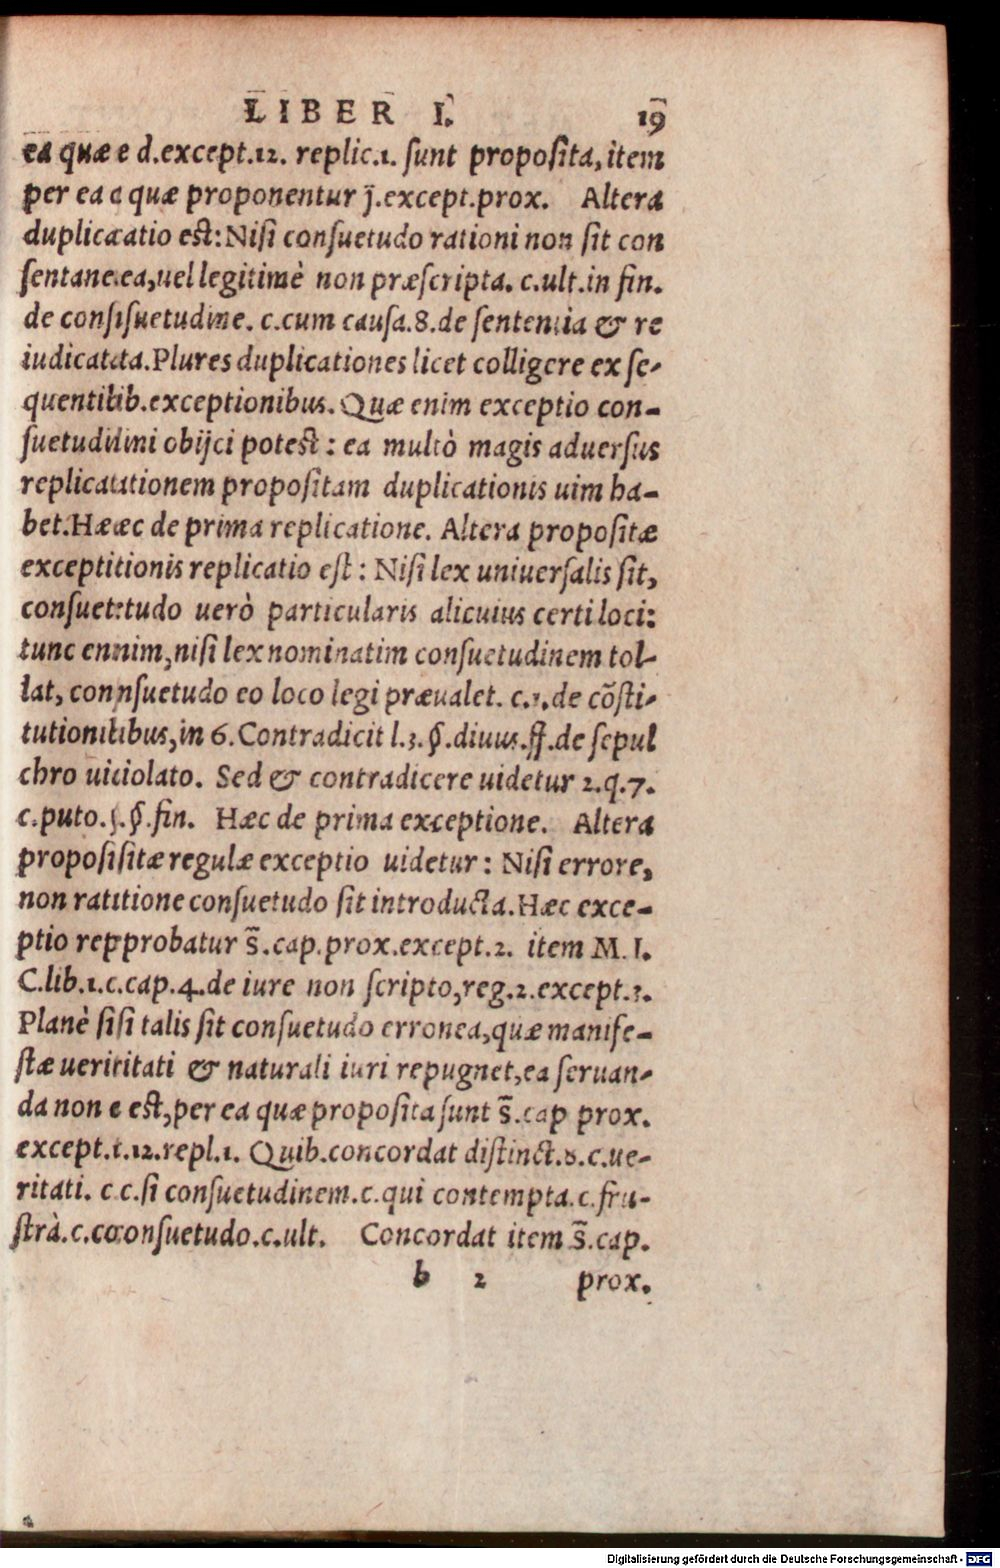 LIBER I. 19
ea quæ e d.except.12. replic.1. ſunt propoſita, item
per ea a quæ proponentur j̄.except.prox. Altera
duplicaatio eſt: Niſi conſuetudo rationi non ſit con
ſentanea ea, uel legitimè non præſcripta. c.ult.in fin.
de conſiſuetudine. c.cum cauſa.8.de ſententia & re
iudicatata. Plures duplicationes licet colligere ex ſe-
quentilib.exceptionibus. Quæ enim exceptio con-
ſuetudini obijci poteſt : ea multò magis aduerſus
replicatationem propoſitam duplicationis uim ha-
bet. Hæc de prima replicatione. Altera propoſitæ
exceptitionis replicatio eſt : Niſi lex uniuerſalis ſit,
conſuetudo uerò particularis alicuius certi loci:
tunc ennim, niſi lex nominatim conſuetudinem tol-
lat, connſuetudo eo loco legi præualet. c.1.de cōſti-
tutionibus, in 6. Contradicit l.3.§.diuus.ff.de ſepul
chro uiolato. Sed & contradicere uidetur 2.q.7.
c.puto.§.fin. Hæc de prima exceptione. Altera
propoſiſitæ regulæ exceptio uidetur : Niſi errore,
non ratitione conſuetudo ſit introducta. Hæc exce-
ptio repprobatur s̄.cap.prox.except.2. item M. I.
C.lib.1.c.cap.4.de iure non ſcripto, reg.2.except.3.
Planè ſiſi talis ſit conſuetudo erronea, quæ manife-
ſtæ ueritati & naturali iuri repugnet, ea ſeruan-
da non e eſt, per ea quæ propoſita ſunt s̄.cap prox.
except.1.12.repl.1. Quib.concordat diſtinct.8.c.ue-
ritati. c c.ſi conſuetudinem.c.qui contempta.c.fru-
ſtrà.c.coonſuetudo.c.ult. Concordat item s̄.cap.
b 2 prox.
Digitalisierung gefördert durch die Deutsche Forschungsgemeinschaft - DFG